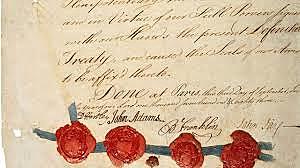 and in Virtue of our Full Powers, signed
with our Hands the present Definitive
Treaty, and caused the Seals of our Arms
to be affix'd thereto.
DONE at Paris, this third day of September,
D Hartley John Adams B Franklin John Jay